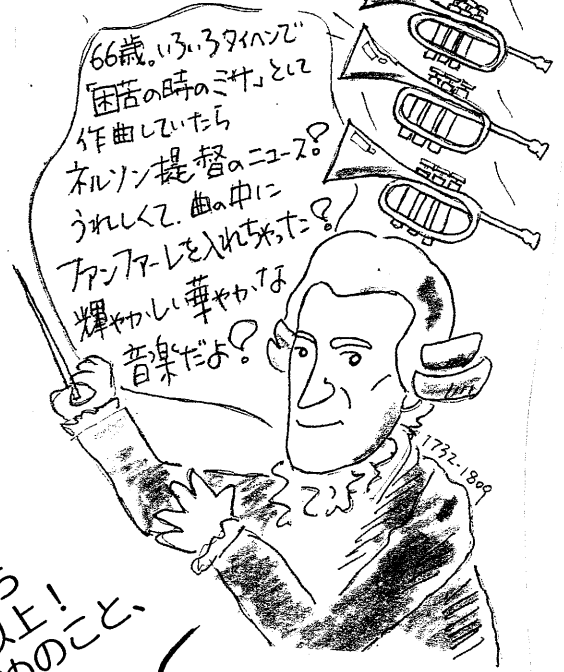 66歳。いろいろタイヘンで
「困苦の時のミサ」として
作曲していたら
ネルソン提督のニュース?
うれしくて、曲の中に
ファンファーレを入れちゃった?
輝やかしい華やかな
音楽だよ?
1732-1809
ら
以上!
のこと、